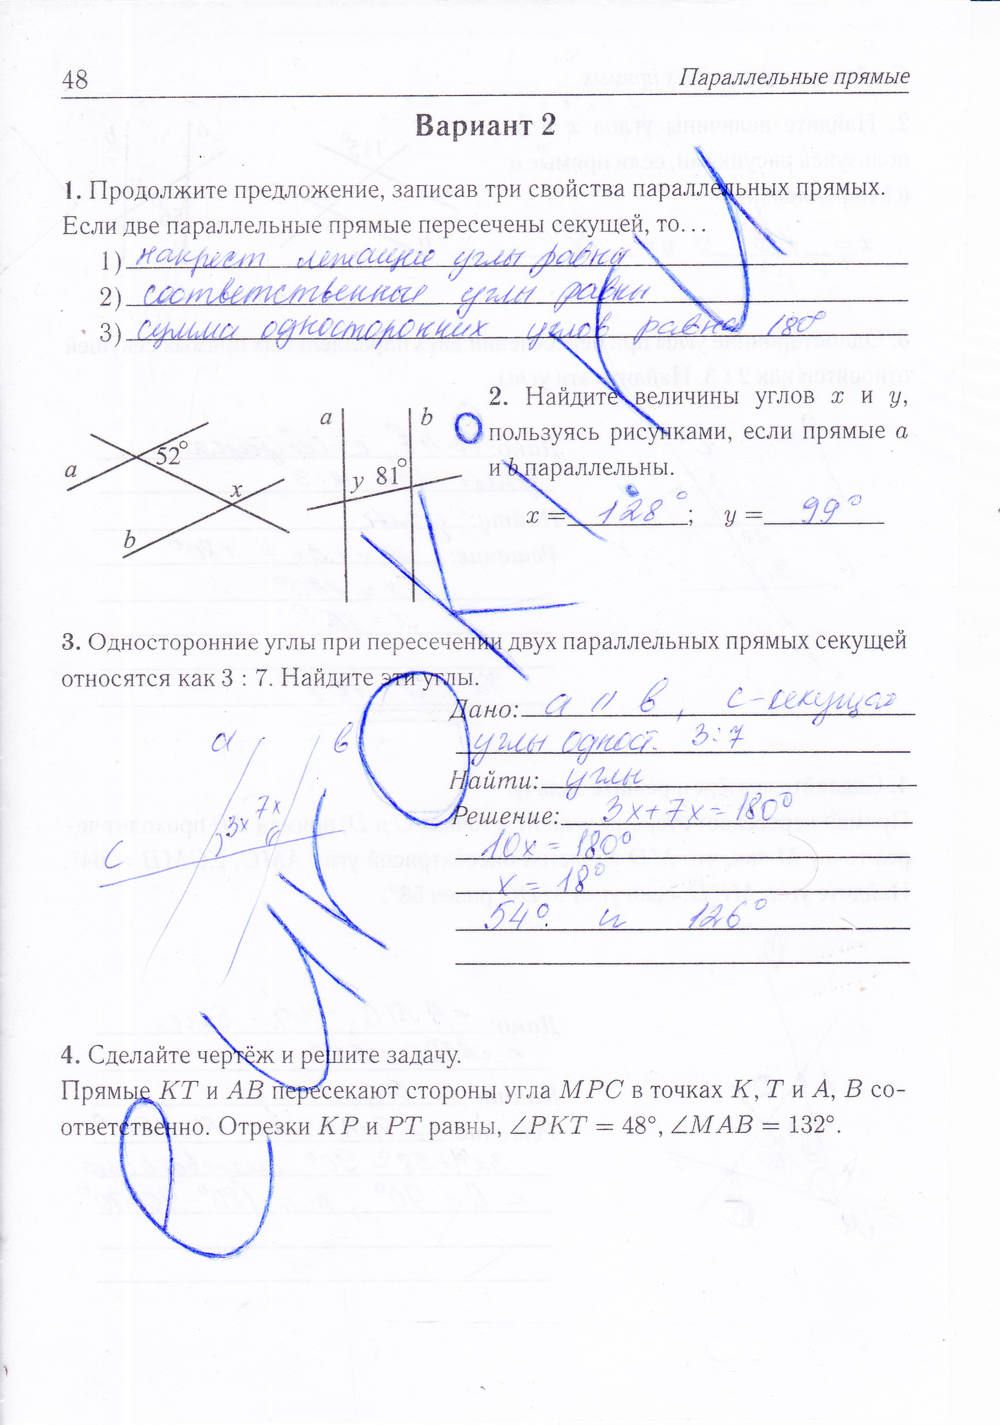 48 Параллельные прямые
Вариант 2
1. Продолжите предложение, записав три свойства параллельных прямых.
Если две параллельные прямые пересечены секущей, то...
1) накрест лежащие углы равны
2) соответственные углы равны
3) сумма односторонних углов равна 180°
a 52° x b
a b y 81°
2. Найдите величины углов x и y,
пользуясь рисунками, если прямые a
и b параллельны.
x = 128°; y = 99°
3. Односторонние углы при пересечении двух параллельных прямых секущей
относятся как 3 : 7. Найдите эти углы.
Дано: a || b, c - секущая
углы одност. 3:7
Найти: углы
Решение: 3x+7x=180°
10x=180°
x=18°
54° и 126°
a b
7x
3x
c
4. Сделайте чертёж и решите задачу.
Прямые KT и AB пересекают стороны угла MPC в точках K, T и A, B со-
ответственно. Отрезки KP и PT равны, ∠PKT = 48°, ∠MAB = 132°.